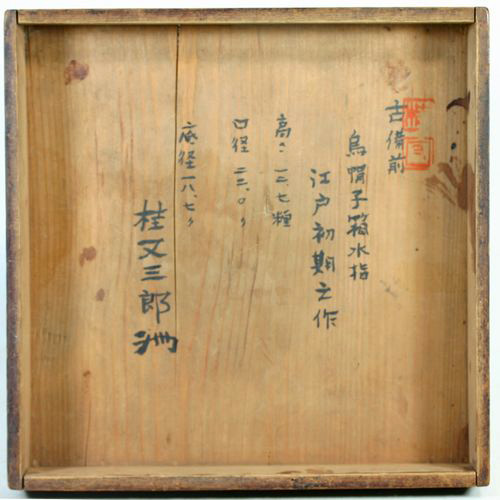 古備前
烏帽子箱水指
江戸初期之作
高さ一二、七糎
口径二三、〇〃
底径一八、七〃
桂又三郎